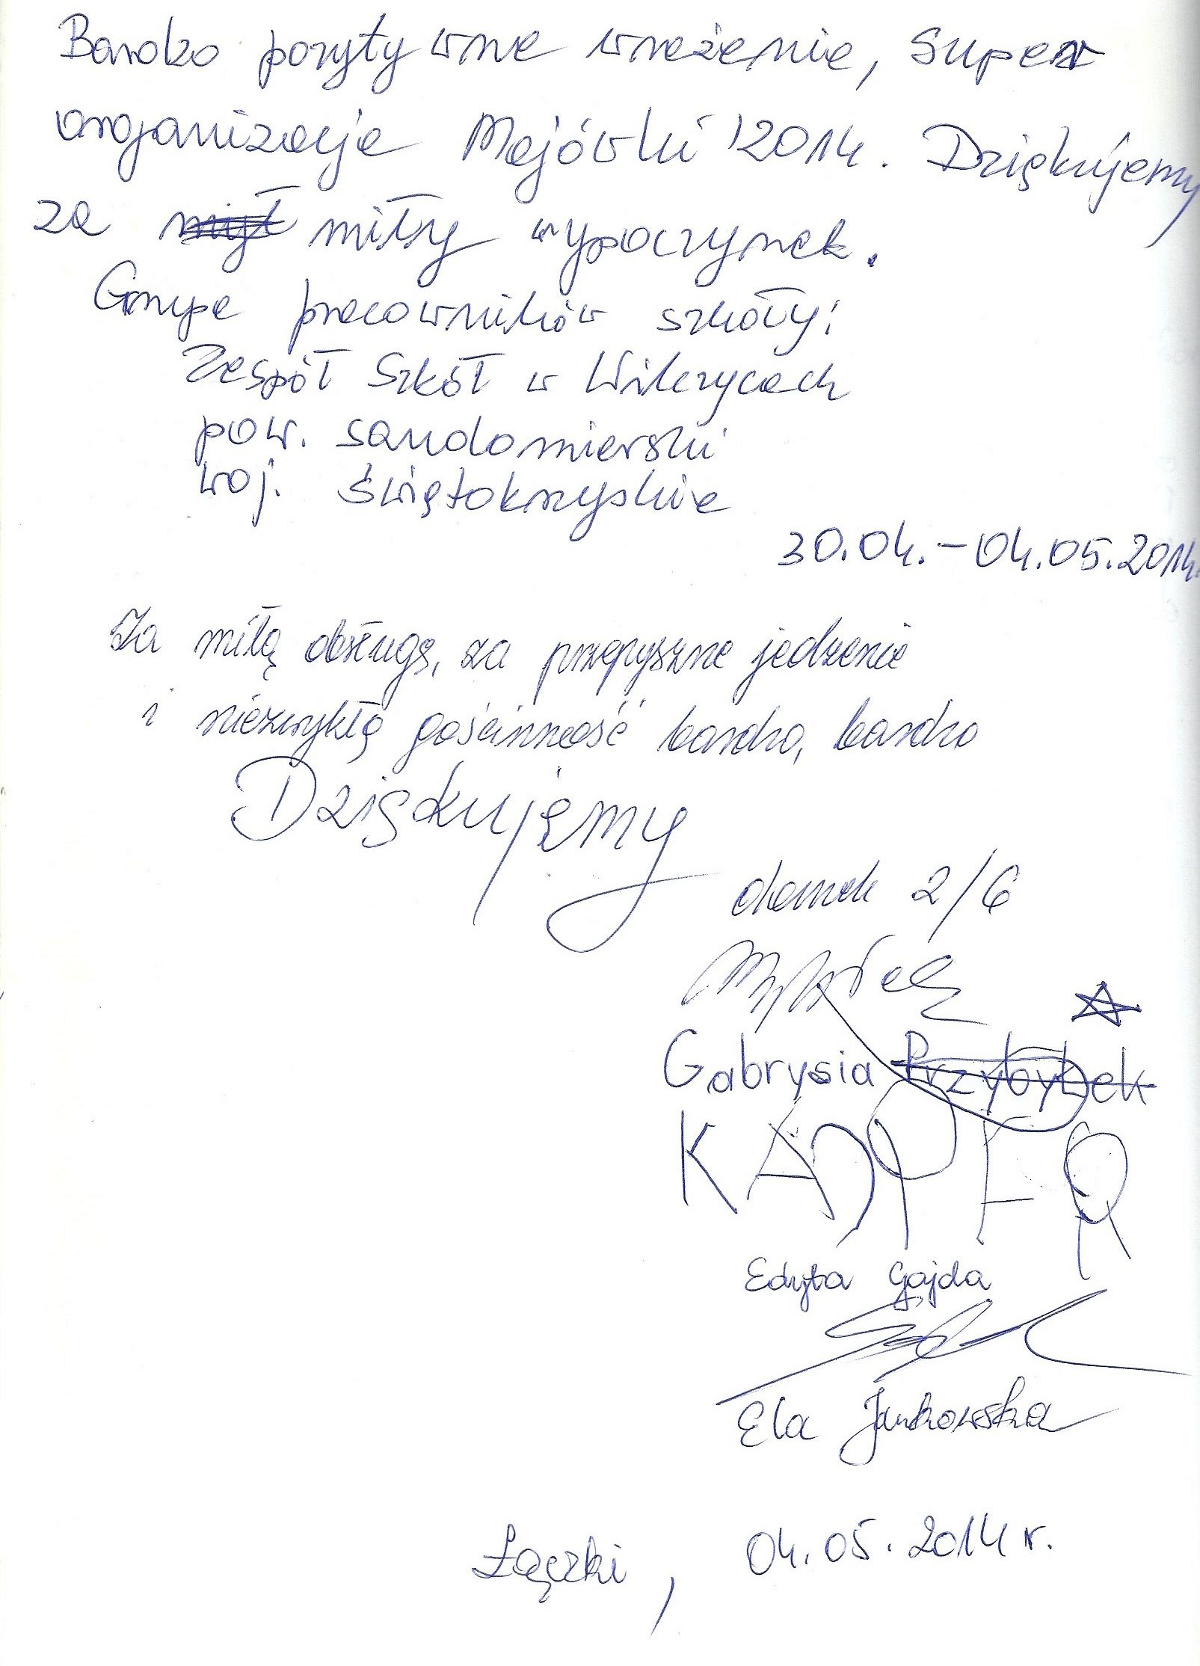 Bardzo pozytywne wrażenie, super
organizacja Majówki '2014. Dziękujemy
za miły wypoczynek.
Grupa pracowników szkoły:
Zespół Szkół w Wilczycach
pow. sandomierski
woj. świętokrzyskie
30.04.-04.05.2014.
Za miłą obsługę, za przepyszne jedzenie
i niezwykłą gościnność bardzo, bardzo
Dziękujemy
domek 2/6
Gabrysia Przybybek
KACPER
Edyta Gajda
Ela Jankowska
Łączki, 04.05.2014 r.